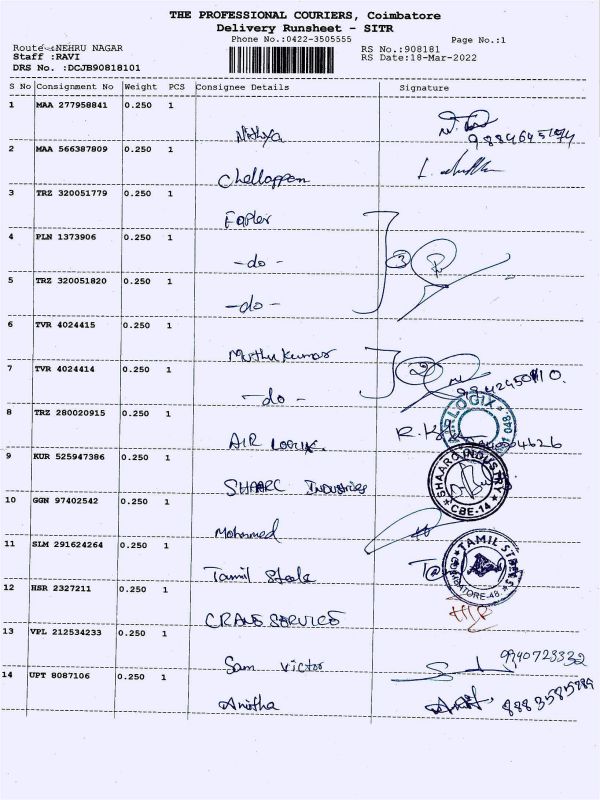 THE PROFESSIONAL COURIERS, Coimbatore
Delivery Runsheet - SITR
Phone No.:0422-3505555 Page No.:1
Route :NEHRU NAGAR RS No.:908181
Staff :RAVI RS Date:18-Mar-2022
DRS No. :DCJB90818101
S No Consignment No Weight PCS Consignee Details Signature
1 MAA 277958841 0.250 1
Nithya
2 MAA 566387809 0.250 1
Chellappan
3 TRZ 320051779 0.250 1
4 PLN 1373906 0.250 1
-do- 3
5 TRZ 320051820 0.250 1
-do-
6 TVR 4024415 0.250 1
Muthu Kumar
7 TVR 4024414 0.250 1
-do-
8 TRZ 280020915 0.250 1
AIR
9 KUR 525947386 0.250 1
SHAARC Industries SHAARC INDUSTRY CBE-14
10 GGN 97402542 0.250 1
Mohammed
11 SLM 291624264 0.250 1
Tamil TAMIL STEELS COIMBATORE-48.
12 HSR 2327211 0.250 1
CRANE SERVICE
13 VPL 212534233 0.250 1
Sam Victor 9940723332
14 UPT 8087106 0.250 1
Anitha